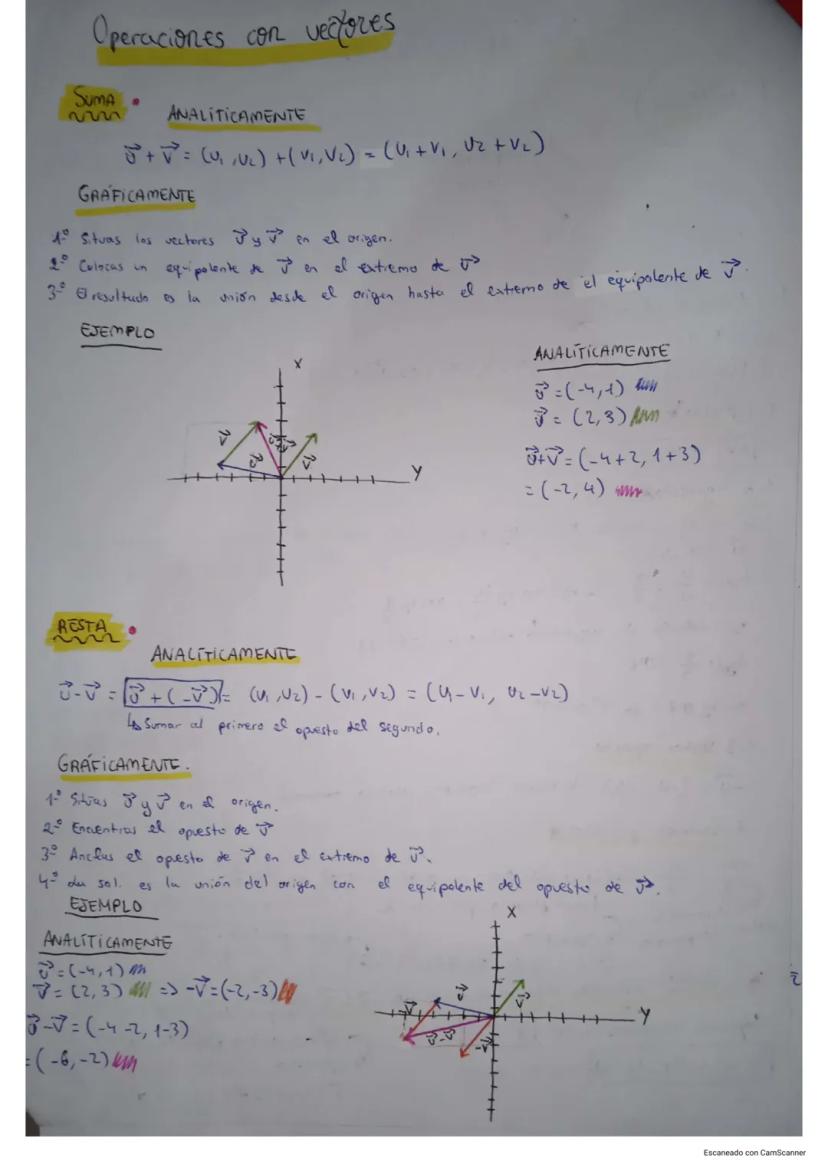 Operaciones con vectores
SUMA
ANALÍTICAMENTE
u⃗ + v⃗ = (u₁, u₂) + (v₁, v₂) = (u₁ + v₁, u₂ + v₂)
GRÁFICAMENTE
1º Situas los vectores u⃗ y v⃗ en el origen.
2º Colocas un equipolente de v⃗ en el extremo de u⃗
3º El resultado es la unión desde el origen hasta el extremo de el equipolente de v⃗.
EJEMPLO
X
Y
v⃗
u⃗
u⃗+v⃗
v⃗
ANALÍTICAMENTE
u⃗ = (-4, 1)
v⃗ = (2, 3)
u⃗+v⃗ = (-4+2, 1+3)
= (-2, 4)
RESTA
ANALÍTICAMENTE
u⃗ - v⃗ = u⃗ + (-v⃗) = (u₁, u₂) - (v₁, v₂) = (u₁ - v₁, u₂ - v₂)
↳ Sumar al primero el opuesto del segundo.
GRÁFICAMENTE.
1º Sitúas u⃗ y v⃗ en el origen.
2º Encuentras el opuesto de v⃗
3º Anclas el opuesto de v⃗ en el extremo de u⃗.
4º La sol. es la unión del origen con el equipolente del opuesto de v⃗.
EJEMPLO
ANALÍTICAMENTE
u⃗ = (-4, 1)
v⃗ = (2, 3) => -v⃗ = (-2, -3)
u⃗ - v⃗ = (-4 -2, 1-3)
= (-6, -2)
X
Y
-v⃗
u⃗
v⃗
u⃗-v⃗
-v⃗
Escaneado con CamScanner